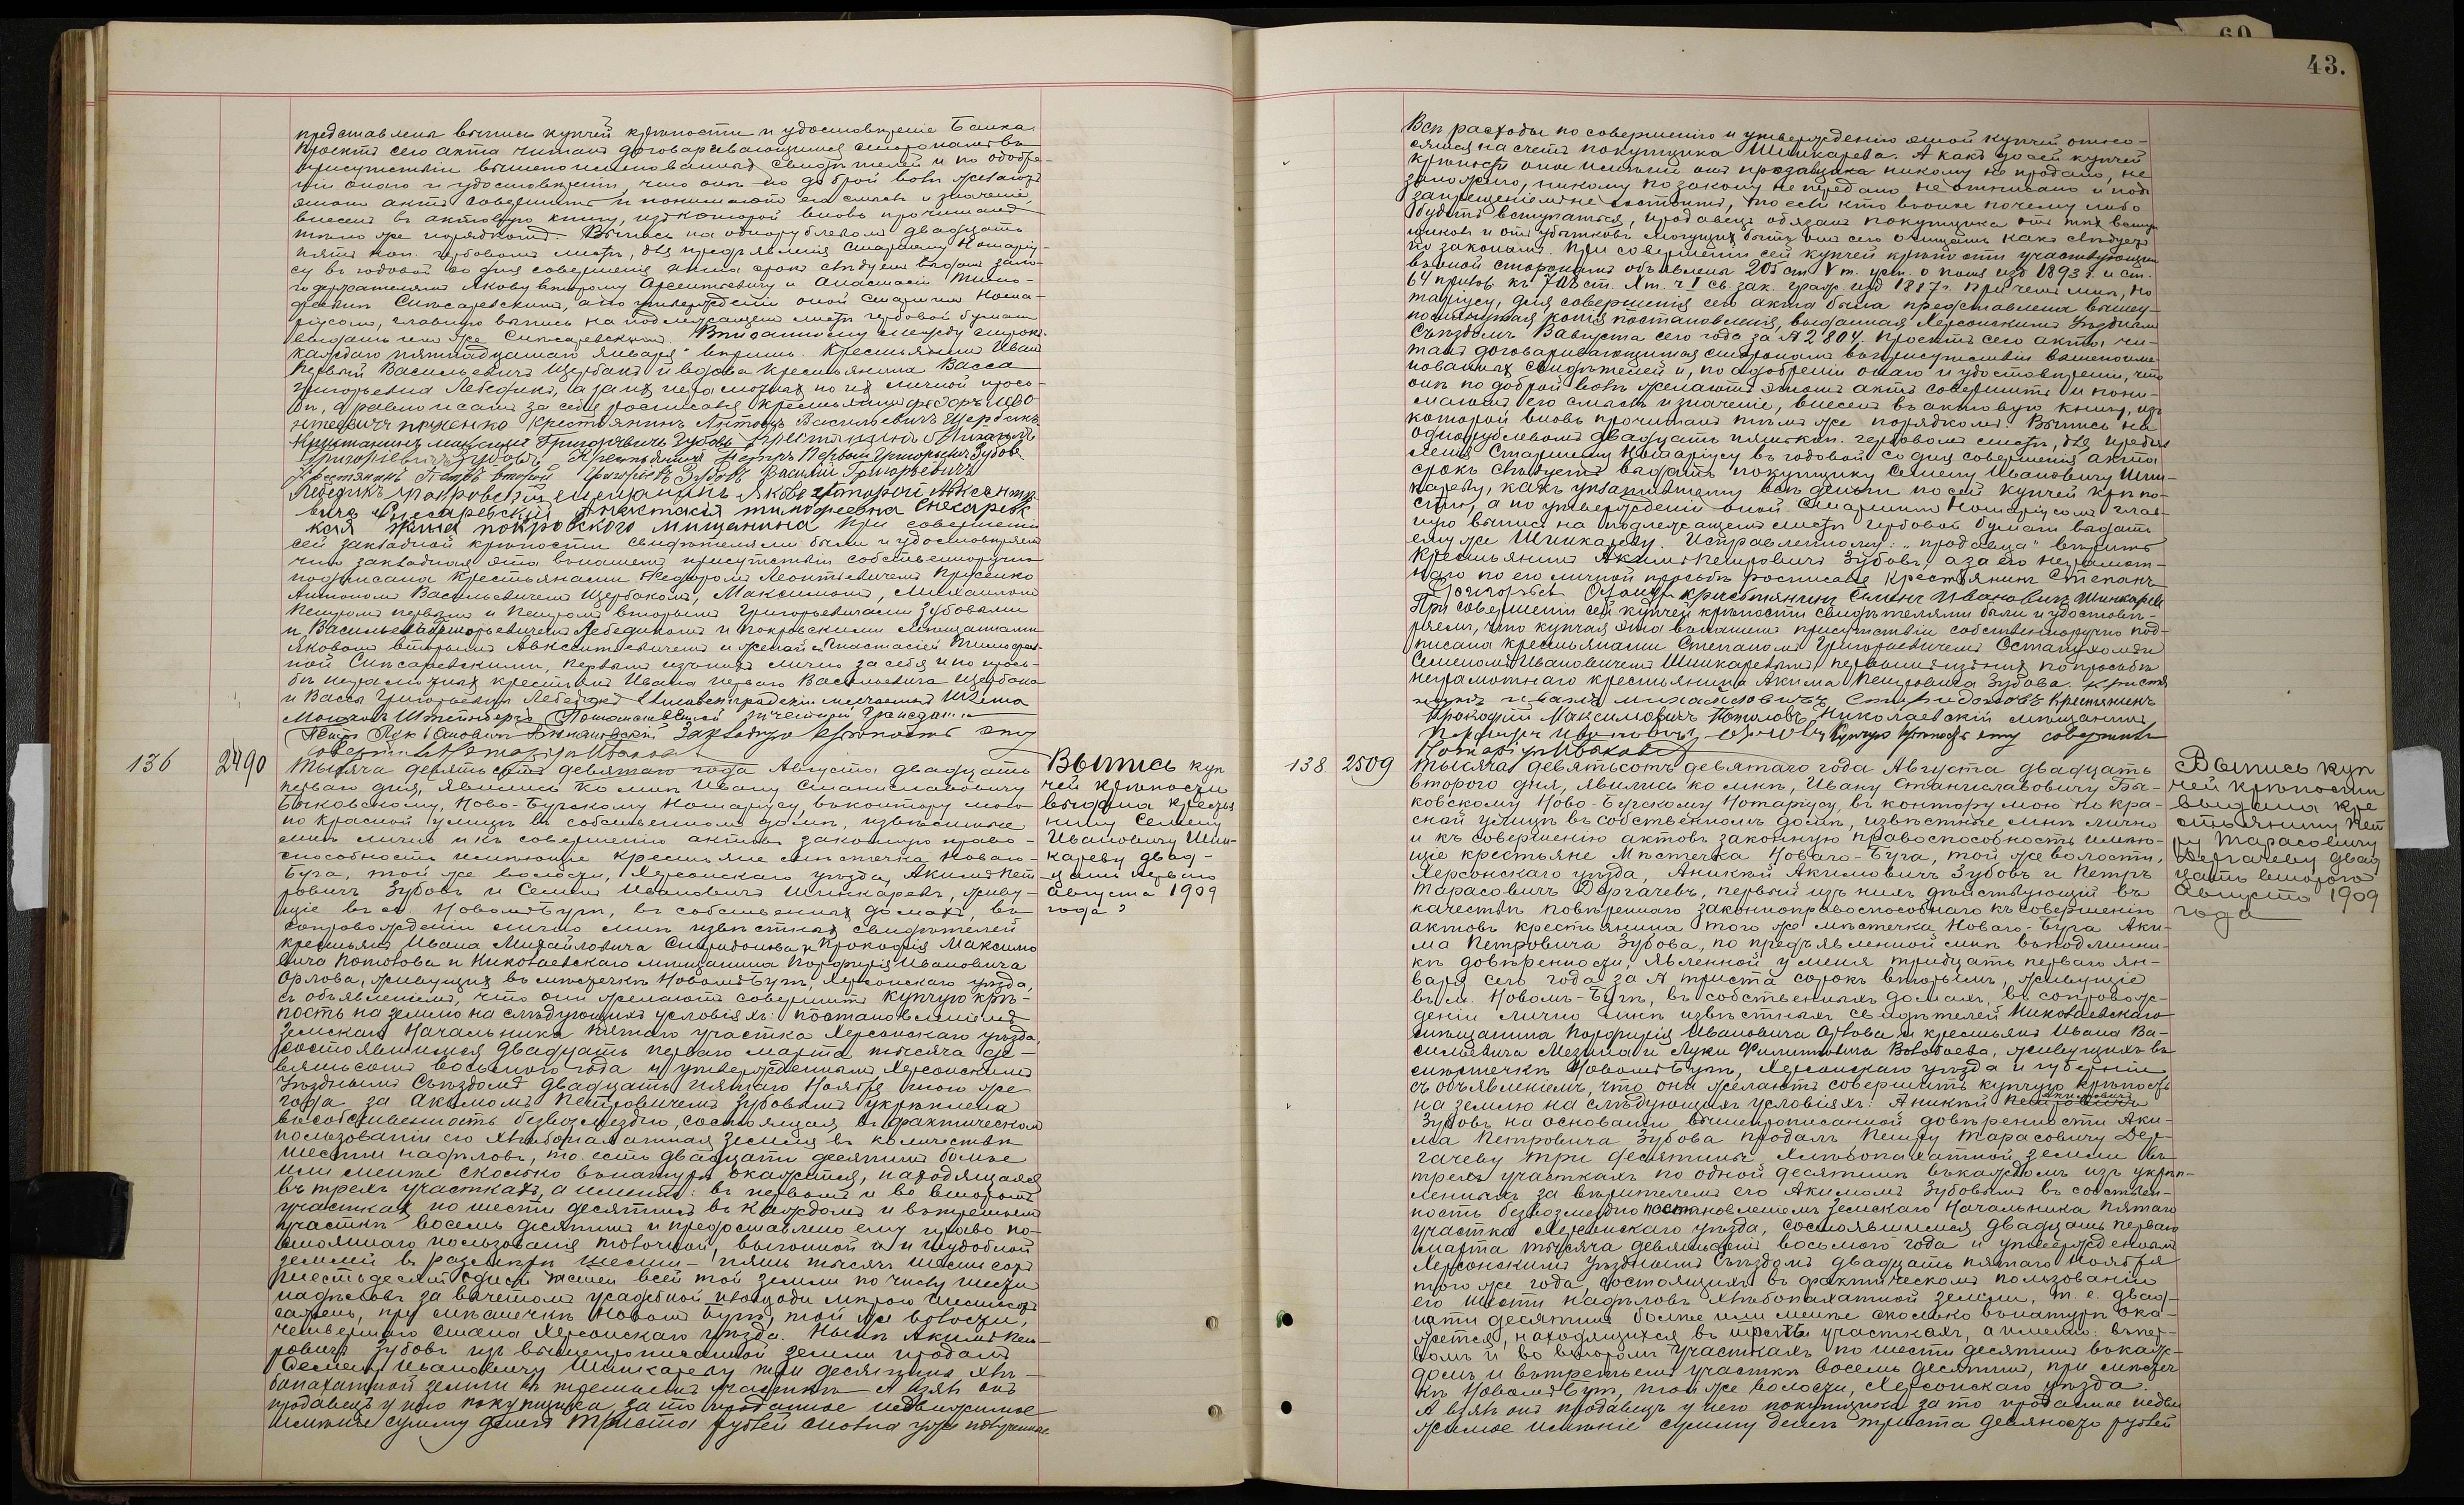 представлена выпись купчей крѣпости и удостовѣреніе Банка.
Проектъ сего акта читанъ договаривающимся сторонамъ въ
присутствіи вышепоименованныхъ свидѣтелей и по одобре-
ніи онаго и удостовѣреніи, что они по доброй волѣ желаютъ
этотъ актъ совершить и понимаютъ его смыслъ и значеніе,
внесенъ въ актовую книгу, изъ которой вновь прочитанъ
тѣмъ же порядкомъ. Выпись на однорублевомъ двадцать
пять коп. гербовомъ листѣ, для предъявленія Старшему Нотаріу-
су въ годовой со дня совершенія акта срокъ слѣдуетъ выдать зало-
годержателямъ Якову второму Арсентьевичу и Анастасіи Тимо-
феевнѣ Снѣсаревскимъ, а по утвержденіи оной Старшимъ Нота-
ріусомъ, главную выпись на подлежащемъ листѣ гербовой бумаги
выдать имъ же Снѣсаревскимъ. между строкъ
каждаго пятнадцатаго января" вѣрить. Крестьянинъ Иванъ
Первый Васильевичъ Щербакъ и вдова крестьянина Васса
Григорьевна Лебедикъ, а за ихъ неграмотныхъ по ихъ личной прось-
бѣ, а равно и самъ за себя росписался крестьянинъ Федоръ Лео-
нтьевичъ Крестьянинъ Антонъ Васильевичъ Щербакъ
Крестьянинъ Максимъ Григорьевичъ Зубовъ Крестьянинъ Михаилъ
Григоріевичъ Зубовъ Крестьянинъ Петръ Первый Григорьевъ Зубовъ
Крестянинъ Петръ второй Григорьевъ Зубовъ Василій Григорьевичъ
Лебедикъ Покровскій мещанинъ Яковъ второй Авксентье-
вичъ Снесаревскій Анастасія Тимофеевна Снесаревс
кая жена покровского мищанина При совершеніи
сей закладной крѣпости свидѣтелями были и удостовѣряемъ
что закладная эта въ нашемъ присутствіи собственноручно
подписана крестьянами Федоромъ Леонтьевичемъ
Антономъ Васильевичемъ Щербакомъ, Максимомъ, Михаиломъ
Петромъ первымъ и Петромъ вторымъ Григорьевичами Зубовыми
и Васильемъ Григорьевичемъ Лебедикомъ и Покровскими мѣщанами
Яковомъ вторымъ Авксентьевичемъ и женой его Анастасіей Тимофеев-
ной Снѣсаревскими, первымъ изъ нихъ лично за себя и по прось-
бѣ неграмотныхъ крестьянъ Ивана перваго Васильевича Щербака
и Вассы Григорьевны Лебедикъ Елисаветградскій мѣщанинъ Шлема
Мошковъ Штейнбергъ Потомственный почетный Гражданинъ
Закладную крѣпость эту
совершилъ Нотаріусъ
136 2490 Тысяча девятьсотъ девятаго года Августа двадцать
перваго дня, явились ко мнѣ Ивану Станиславовичу
Бычковскому, Ново-Бугскому Нотаріусу, въ контору мою
по Красной улицѣ въ собственномъ домѣ, извѣстные
мнѣ лично и къ совершенію актовъ законную право-
способность имѣющіе крестьяне мѣстечка Новаго-
Буга, той же волости, Херсонскаго уѣзда, Акимъ Пет
ровичъ Зубовъ и Семенъ Ивановичъ Шинкаревъ, живу-
щіе въ м. Новомъ Бугѣ, въ собственныхъ домахъ, въ
сопровожденіи лично мнѣ извѣстныхъ свидѣтелей
крестьянъ Ивана Михайловича Спиридонова и Прокофія Максимо
вича Потолова и Николаевскаго мѣщанина Порфирія Ивановича
Орлова, живущихъ въ мѣстечкѣ Новомъ Бугѣ, Херсонскаго уѣзда,
съ объявленіемъ, что они желаютъ совершить купчую крѣ-
пость на землю на слѣдующихъ условіяхъ: постановленіемъ
Земскаго Начальника пятаго участка Херсонскаго уѣзда
состоявшимся двадцать перваго марта тысяча де-
вятьсотъ восьмого года и утвержденнымъ Херсонскимъ
Уѣзднымъ Съѣздомъ двадцать пятаго Ноября того же
года за Акимомъ Петровичемъ Зубовымъ укрѣплена
въ собственность безвозмездно, состоящая въ фактическомъ
пользованіи его хлѣбопахатная земля въ количествѣ
шести надѣловъ, то есть двадцати десятинъ болѣе
или менѣе сколько въ натурѣ окажется, находящаяся
въ трехъ участкахъ, а именно: въ первомъ и во второмъ
участкахъ по шести десятинъ въ каждомъ и въ третьемъ
участкѣ восемь десятинъ и предоставлено ему право по-
стояннаго пользованія толочной, выгонной и неудобной
землей въ размѣрѣ шести- пять тысячъ шестисотъ
шестьдесятъ одной части всей той земли по числу шести
надѣловъ за вычетомъ усадебной площади мѣрою шестисотъ
сажень, при мѣстечкѣ Новомъ Бугѣ, той же волости,
четвертаго стана Херсонскаго уѣзда. Нынѣ Акимъ Пет-
ровичъ Зубовъ изъ вышеописанной земли продалъ
Семену Ивановичу Шинкареву три десятины хлѣ-
бопахатной земли въ третьемъ участкѣ А взялъ онъ
продавецъ у него покупщика за то проданное недвижимое
имѣніе сумму денегъ триста рублей сполна уже полученные
Выпись куп
чей крѣпости
выдана крестья
нину Семену
Ивановичу Шин-
кареву двад-
цать перваго
Августа 1909
года
43.
Всѣ расходы по совершенію и утвержденію этой купчей отно-
сятся на счетъ покупщика Шинкарева. А какъ до сей купчей
крѣпости оно имѣніе отъ продавщика никому не продано, не
заложено, никому по закону не передано не отписано и подъ
запрещеніемъ не состоитъ, то если кто въ оное почему либо
будетъ вступаться, продавецъ обязанъ покупщика отъ тѣхъ вступ
щиковъ и отъ убытковъ могущихъ быть отъ сего очищать какъ слѣдуетъ
по законамъ. При совершеніи сей купчей крѣпости участвующимъ
въ оной сторонамъ объявлены 205 ст. V т. уст. о пошл. изд. 1893 г. и ст.
64 прилож. къ 708 ст. X т. ч I св. зак. граж. изд 1887 г. При чемъ мнѣ, Но
таріусу, для совершенія сего акта была представлена вышеу-
помянутая копія постановленія, выданная Херсонскимъ Уѣзднымъ
Съѣздомъ 8 августа сего года за № 2804. Проектъ сего акта, чи-
танъ договаривающимся сторонамъ въ присутствіи вышепоиме-
нованныхъ свидѣтелей и, по одобреніи онаго и удостовѣреніи, что
они по доброй волѣ желаютъ этотъ актъ совершить и пони-
маютъ его смыслъ и значеніе, внесенъ въ актовую книгу, изъ
которой вновь прочитанъ тѣмъ же порядкомъ. Выпись на
однорублевомъ двадцать пяти коп. гербовомъ листѣ, для предъяв
ленія Старшему Нотаріусу въ годовой со дня совершенія акта
срокъ слѣдуетъ выдать покупщику Семену Ивановичу Шин-
кареву, какъ уплатившему всѣ деньги по сей купчей крѣпо-
сти, а по утвержденіи оной Старшимъ Нотаріусомъ глав-
ную выпись на подлежащемъ листѣ гербовой бумаги выдать
ему же Шинкареву. Исправленному: "продавца" вѣрить
Крестьянинъ Акимъ Петровичъ Зубовъ, а за его неграмот-
наго по его личной просьбѣ росписался крестьянинъ Степанъ
Григорьев крестьянинъ Семенъ Ивановичъ Шинкаревъ
При совершеніи сей купчей крѣпости свидѣтелями были и удостовѣ-
ряемъ, что купчая эта въ нашемъ присутствіи собственноручно под-
писана крестьянами Степаномъ Григорьевичемъ и
Семеномъ Ивановичемъ Шинкаревымъ, первымъ изъ нихъ по просьбѣ
неграмотнаго крестьянина Акима Петровича Зубова. Кристя
нинъ Иванъ Михайловичъ Спиридоновъ Крестянинъ
Прокофій Максимовичъ Потоловъ Николаевскій мѣщанинъ
Порфирій Ивановичъ Орловъ Купчую крѣпость эту совершилъ
Нотаріусъ
138 2509 Тысяча девятьсотъ девятаго года Августа двадцать
второго дня, явились ко мнѣ, Ивану Станиславовичу Бы-
ковскому Ново-Бугскому Нотаріусу, въ контору мою по Кра-
сной улицѣ въ собственномъ домѣ, извѣстные мнѣ лично
и къ совершенію актовъ законную правоспособность имѣю-
щіе крестьяне Мѣстечка Новаго-Буга, той же волости,
Херсонскаго уѣзда, Аникій Акимовичъ Зубовъ и Петръ
Тарасовичъ Дергачевъ, первый изъ нихъ дѣйствующій въ
качествѣ повѣреннаго законноправоспособнаго къ совершенію
актовъ крестьянина того же мѣстечка Новаго-Буга Аки-
ма Петровича Зубова, по предъявленной мнѣ въ подлинни-
кѣ довѣренности, явленной у меня тридцать перваго ян-
варя сего года за № триста сорокъ вторымъ, живущіе
въ м. Новомъ-Бугѣ, въ собственныхъ домахъ, въ сопровож-
деніи лично мнѣ извѣстныхъ свидѣтелей Николаевскаго
мѣщанина Порфирія Ивановича Орлова и крестьянъ Ивана Ва-
сильевича Мезина и Луки Филипповича Волобоева, живущихъ въ
мѣстечкѣ Новомъ Бугѣ, Херсонскаго уѣзда и губерніи
съ объявленіемъ, что они желаютъ совершить купчую крѣпость
на землю на слѣдующихъ условіяхъ: Аникій Петровичъ Акимовичъ
Зубовъ на основаніи вышепрописанной довѣренности Аки-
ма Петровича Зубова продалъ Петру Тарасовичу Дер-
гачеву три десятины хлѣбопахатной земли въ
трехъ участкахъ по одной десятинѣ въ каждомъ изъ укрѣп-
ленныхъ за вѣрителемъ его Акимомъ Зубовымъ въ собствен-
ность безвозмездно постановленіемъ Земскаго Начальника пятаго
участка Херсонскаго уѣзда, состоявшимся двадцать перваго
марта тысяча девятьсотъ восьмого года и утвержденнымъ
Херсонскимъ Уѣзднымъ Съѣздомъ двадцать пятаго Ноября
того же года, состоящихъ въ фактическомъ пользованіи
его шести надѣловъ хлѣбопахатной земли, т. е. двад-
цати десятинъ болѣе или менѣе сколько въ натурѣ ока-
жется, находящихся въ трехъ участкахъ, а именно: въ пер-
вомъ и во второмъ участкахъ по шести десятинъ въ каж-
домъ и въ третьемъ участкѣ восемь десятинъ, при мѣстеч
кѣ Новомъ Бугѣ, той же волости, Херсонскаго уѣзда.
А взялъ онъ продавецъ у него покупщика за то проданное недви
жимое имѣніе сумму денегъ триста девяносто рублей
Выпись куп
чей крѣпости
выдана кре
стьянину Пет
ру Тарасовичу
Дергачеву двад
цать второго
Августа 1909
года